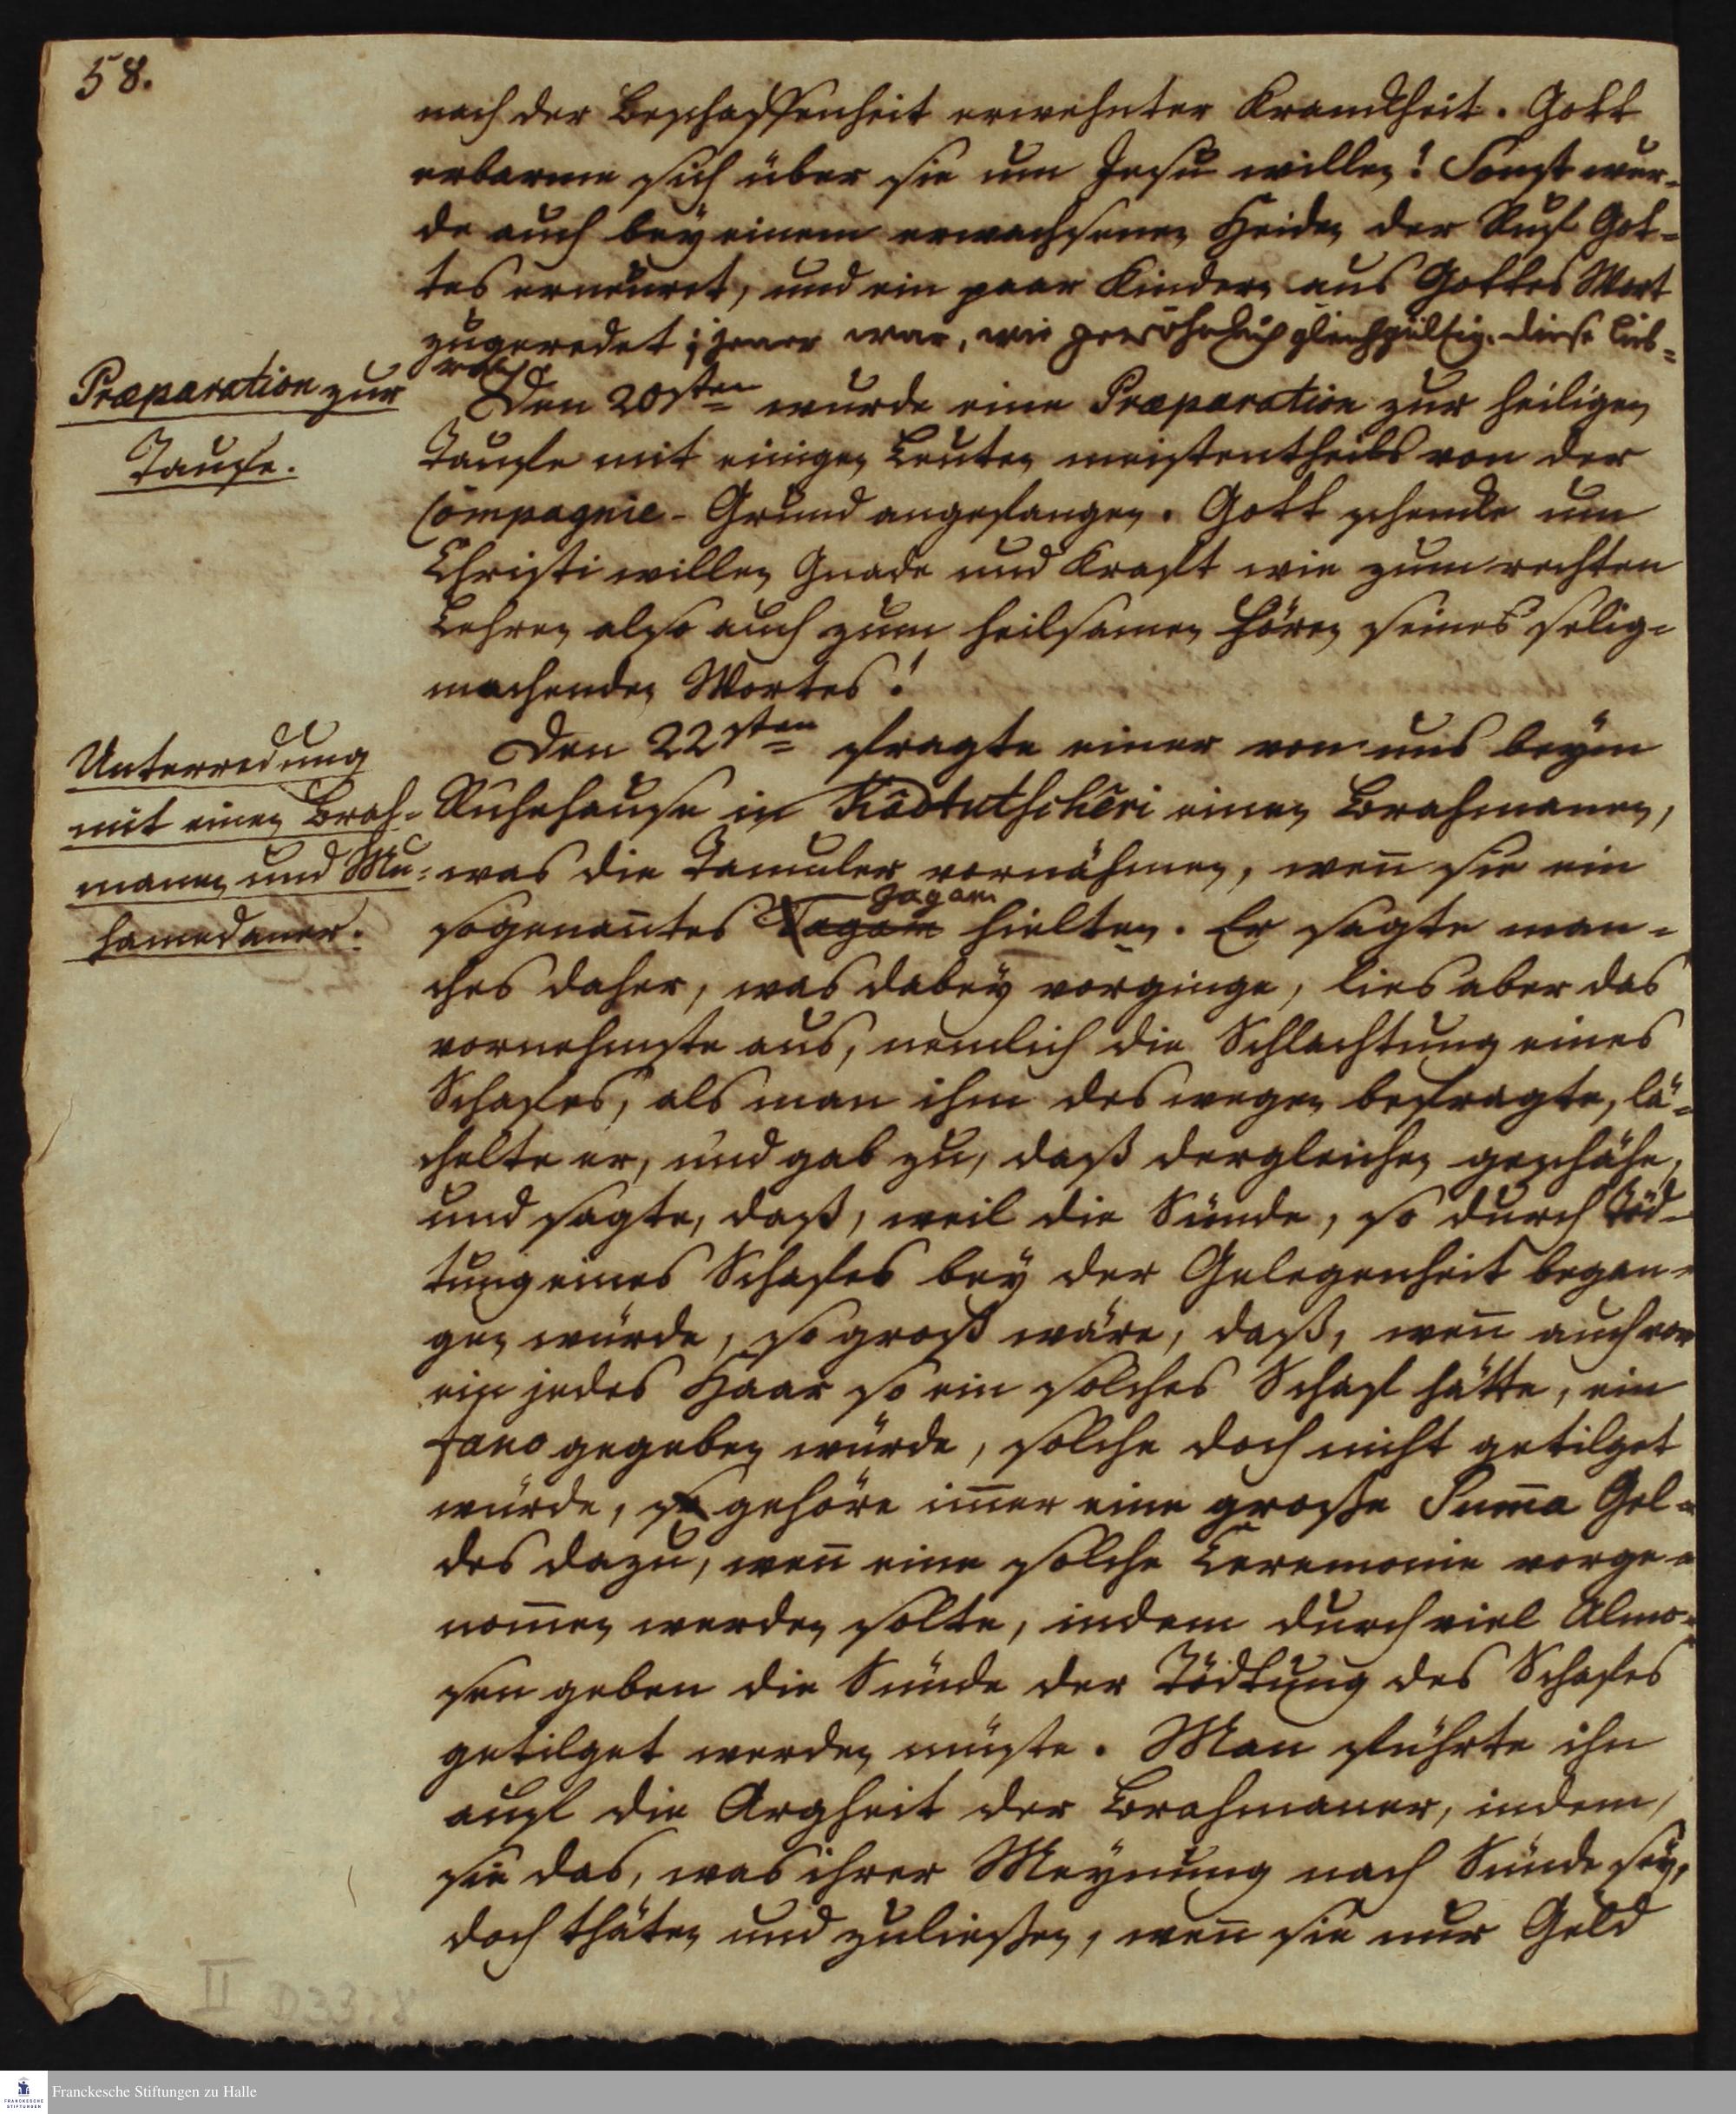 58.
nach der Beschaffenheit erwehnter Kranckheit. Gott
erbarme sich über sie um Jesu willen! Sonst wur-
de auch bey einem erwachsenen Heiden der Ruf Got-
tes erneuret, und ein paar Kindern aus Gottes Wort
zugeredet; jener war, wie gewöhnlich gleichgültig. diese lieb-
reich.
Præparation zur
Taufe.
Den 20sten wurde eine Præparation zur heiligen
Taufe mit einigen Leuten meistentheils von der
Compagnie-Grund angefangen. Gott schencke um
Christi willen Gnade und Kraft wie zum rechten
Lehren also auch zum heilsamen Hören seines selig-
machenden Wortes!
Unterredung
mit einen Brah-
manen und Mu-
hamedaner.
Den 22sten fragte einer von uns beym
Ruhehause in Kôdtutschêri einen Brahmanen,
was die Tamuler vornähmen, weñ sie ein
Jagam
sogenañtes Tagam hielten. Er sagte man-
ches daher, was dabey vorginge, lies aber das
vornehmste aus, nemlich die Schlachtung eines
Schafes, als man ihm deswegen befragte, lä-
chelte er, und gab zu, daß dergleichen geschähe,
und sagte, daß, weil die Sünde, so durch Töd-
tung eines Schafes bey der Gelegenheit began-
gen würde, so groß wäre, daß, weñ auch vor
ein jedes Haar so ein solches Schaf hätte, ein
fano gegeben würde, solche doch nicht getilget
würde, so gehöre im̃er eine große Sum̃a Gel-
des dazu, weñ eine solche Ceremonie vorge-
nom̃en werden solte, indem durch viel Almo-
sen geben die Sünde der Tödtung des Schafes
getilget werden müste. Man führte ihn
auf die Argheit der Brahmaner, indem
sie das, was ihrer Meynung nach Sünde sey,
doch thäten und zuließen, weñ sie nur Geld
II D33:8
Franckesche Stiftungen zu Halle
FRANCKESCHE
STIFTUNGEN